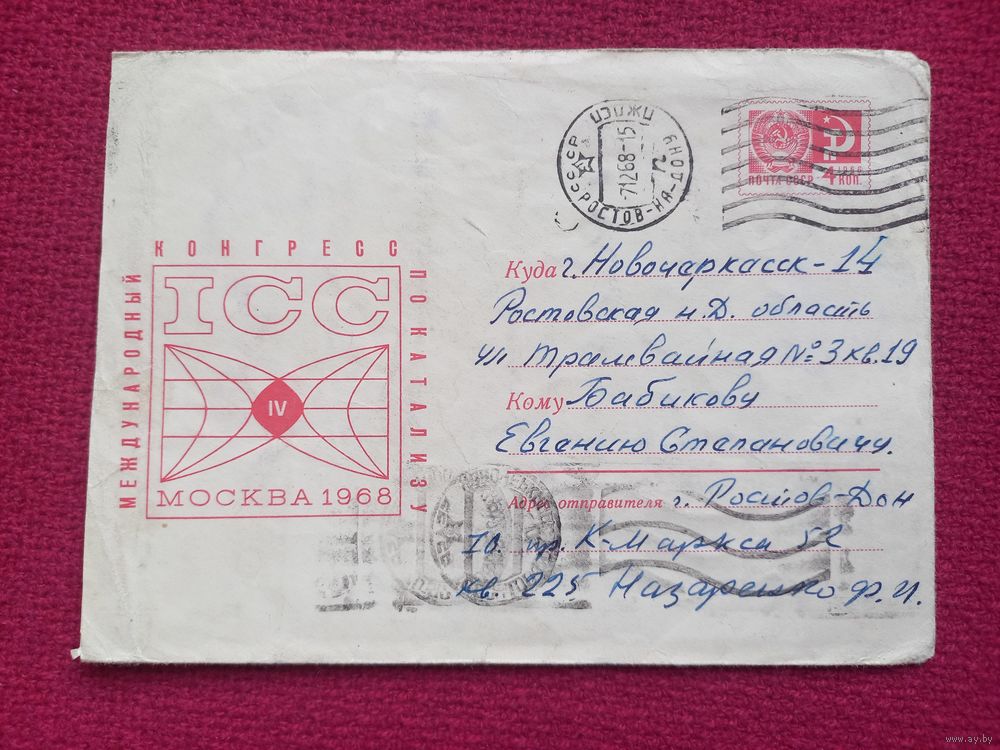 СССР РОСТОВ-НА-ДОНУ
-71268-15
12
ПОЧТА СССР
4 КОП.
1966
МЕЖДУНАРОДНЫЙ
КОНГРЕСС
ПО КАТАЛИЗУ
ICC
IV
МОСКВА 1968
Куда г. Новочеркасск-14
Ростовская н.Д. область
ул Трамвайная № 3 кв. 19
Кому Бабикову
Евгению Степановичу.
Адрес отправителя г. Ростов-Дон
пр. К-Маркса 52
кв. 225 Назаренко Ф.И.
www.ay.by